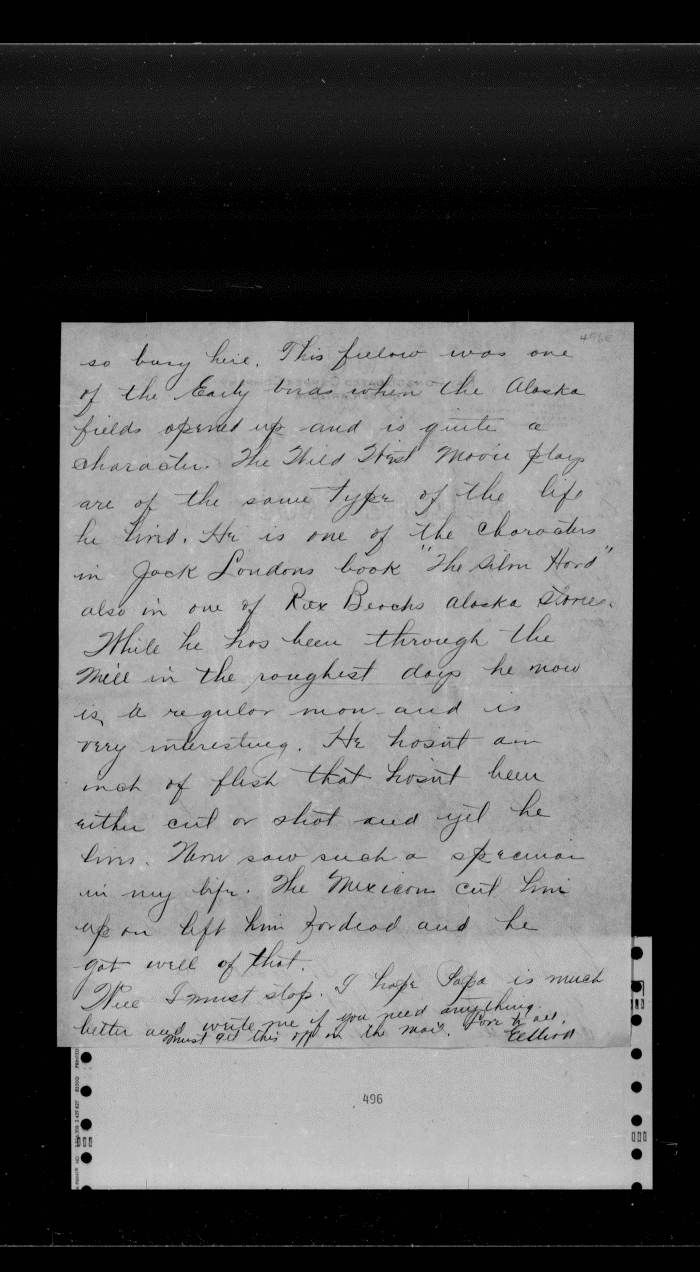 so busy here. This fellow was one
of the Early birds when the Alaska
fields opened up and is quite a
character. The Wild West Movie plays
are of the same type of the life
he lived. He is one of the characters
in Jack Londons book "The Silver Hord"
also in one of Rex Beachs Alaska Stories.
While he has been through the
Mill in the roughest days he now
is a regular man and is
very interesting. He hasnt an
inch of flesh that hasnt been
either cut or shot and yet he
lives. Never saw such a speciman
in my life. The Mexicans cut him
up an left him for dead and he
got well of that.
Well I must stop. I hope Papa is much
better and write me if you need anything.
Must get this off on the mail. Love to all.
Elliott
496